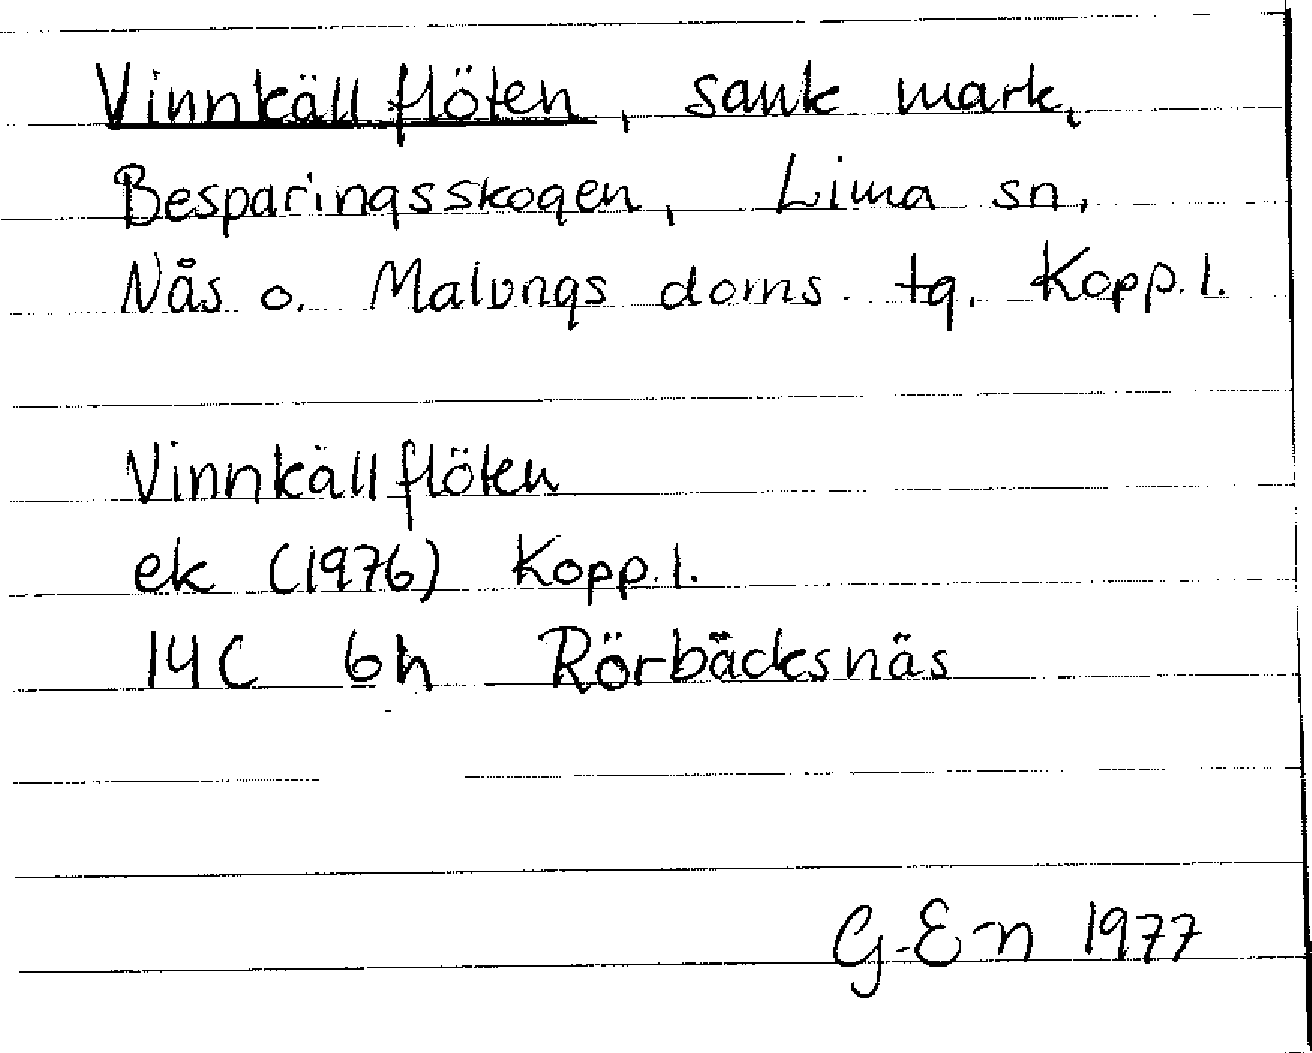 Vinnkällflöten, sank mark,
Besparingsskogen, Lima sn,
Nås o. Malungs doms. tg. Kopp. l.
Vinnkällflöten
ek (1976) Kopp. l.
14C 6h Rörbäcksnäs
G. E-n 1977